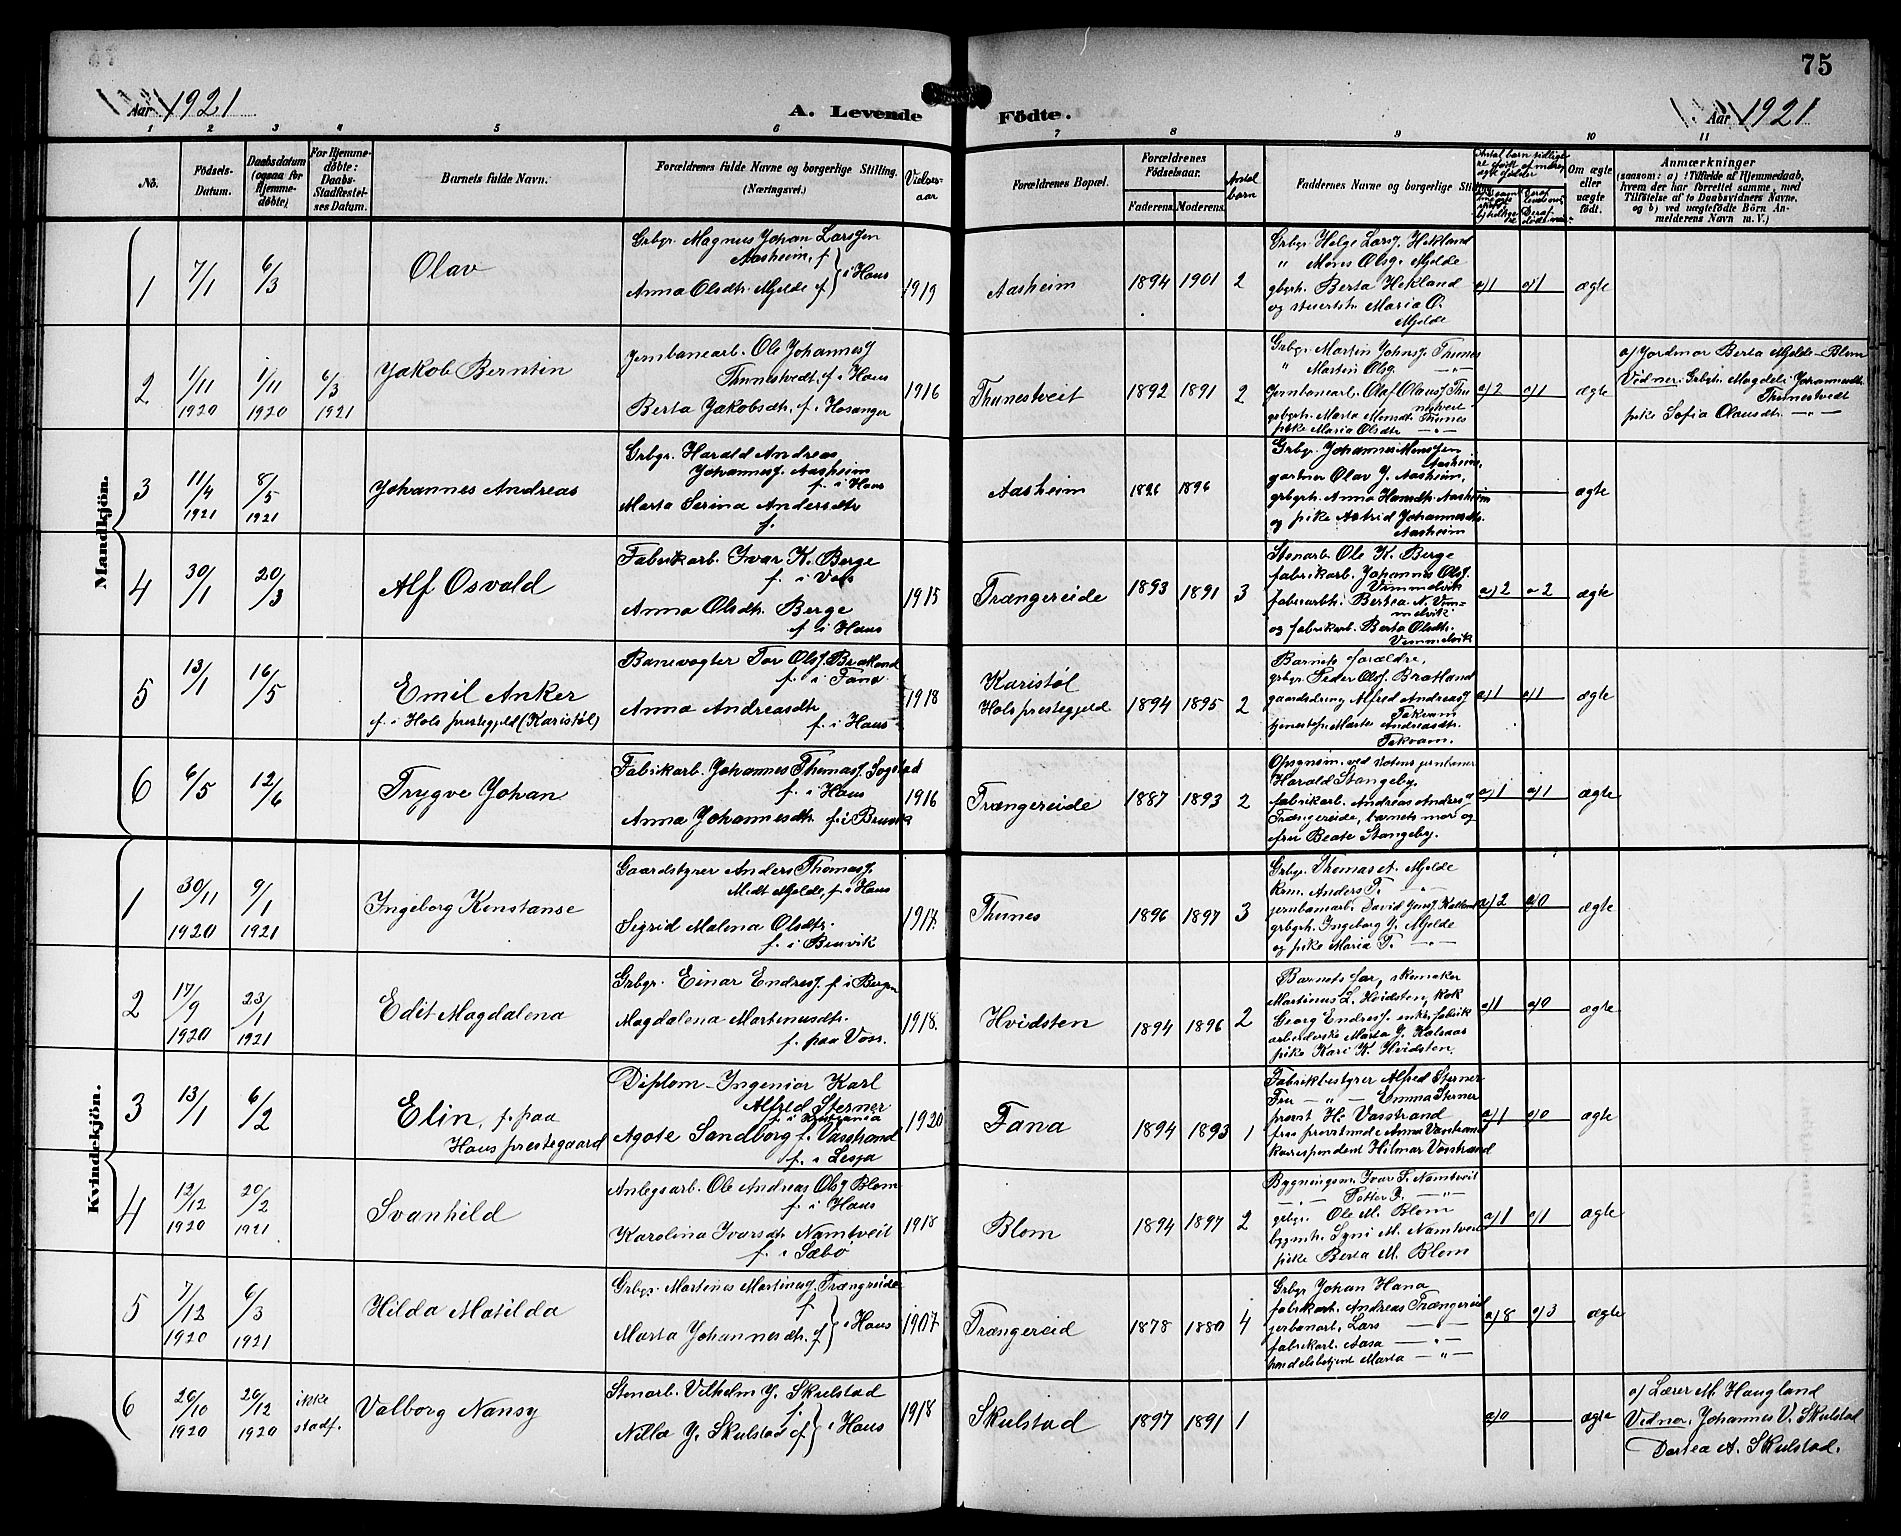 75
Aar 1921
A. Levende Fødte.
Aar 1921
1 2 3 4 5 6 7 8 9 10 11
No.
Fødsels-Datum.
Daabsdatum (ogsaa for Hjemmedøbte)
For Hjemmedøbte: Daabs-Stadfestelses Datum.
Barnets fulde Navn.
Forældrenes fulde Navne og borgerlige Stilling. (Næringsvei.)
Vielses-aar
Forældrenes Bopæl.
Forældrenes Fødselsaar.
Faderens. Moderens.
Antal barn
Faddernes Navne og borgerlige Stilling
Om ægte eller uægte født.
Anmærkninger
(saasom: a) i Tilfælde af Hjemmedaab,
hvem der har forrettet samme, med
Tilføielse af to Daabsvidners Navne,
og b) ved uægtefødte Børn An-
melderens Navn m. V.)
Mandkjön.
1 7/1 6/3 Olav
Grbgr. Magnus Johan Larssen
Aasheim, f
Anna Olsdtr. Mjelde f } i Haus
1919 Aasheim 1894 1901 2
Grbgr. Helge Larsf. Hekland
" Mons Olsg. Mjelde
gbgrh. Berta Hekland
og Maria O.
Mjelde
a/1 a/1 ægte
2 1/11 1920 1/11 1920 6/3 1921 Jakob Berntin
Jernbanearb. Ole Johannesf
Thunestvedt. f. i Haus
Berta Jakobsdtr. f. i Hosanger
1916 Thunestveit 1892 1891 2
Grbgr. Martin Johnsf. Thunes
" Martin Olsg. —"—
Jernbanearb. Olaf Olausf. Thu
nestveit
grbgrh. Marta Monsdtr. Thunes
pike Maria Olsdtr —"—
a/2 a/1 ægte
a/ Jordmor Berta Mjelde-Blom
Vidner: Grbgrh. Magdeli Johannesdtr.
Thunestvedt
pike Sofia Olausdtr. —"—
3 11/4 1921 8/5 1921 Johannes Andreas
Grbgr. Harald Andreas
Johannesf. Aasheim
f. i Haus
Marta Serina Andersdtr
f.
Aasheim 1896 1896
Grbgr. Johannes Monssen
Aasheim,
gartner Olav J. Aasheim,
grbgrh. Anna Hansdtr. Aasheim
og pike Astrid Johannesdtr.
Aasheim
ægte
4 30/1 20/3 Alf Osvald
Fabrikarb. Ivar K. Berge
f. i Voss
Anna Olsdtr. Berge
f. i Haus
1915 Trængereide 1893 1891 3
Stenarb. Ole K. Berge
fabrikarb. Johannes Olsf.
Vimmelvik
fabrikarbh. Bertea N. Vim-
melvik
og fabrikarb. Berta Olsdtr.
Vimmelvik
a/2 a 2 ægte
5 13/1 16/5 Emil Anker
f. i Hols prestegjeld (Karistøl)
Banevogter Tor Olsf. Bratland
f. i Fana
Anna Andreasdtr
f. i Haus
1918 Karistøl
Hols prestegjeld
1894 1895 2
Barnets forældre,
grbgr. Peder Olsf. Bratland
gaardsdreng Alfred Andreasf
Takvam
tjenestep. Marta Andreasdtr.
Takvam.
a/1 a/1 ægte
6 6/5 12/6 Trygve Johan
Fabrikarb. Johannes Thomasf. Sogstad
f. i Haus
Anna Johannesdtr. f. i Bruvik
1916 Trængereide 1887 1893 2
Opsynsm. ved Statens jernbaner
Harald Stangeby,
fabrikarb. Andreas Andersf
Trængereide, barnets mor og
fru Beate Stangeby.
a/1 a/1 ægte
Kvindekjön.
1 30/11 1920 9/1 1921 Ingeborg Konstanse
Gaardstyrer Anders Thomasf.
Midt Mjelde, f. i Haus
Sigrid Malena Olsdtr.
f. i Bruvik
1917. Thunes 1896 1897 3
Grbgr. Thomas A. Mjelde
krm. Anders T. —"—
jernbanearb. David Jensf. Kalland
grbgrh. Ingeborg J. Mjelde
og pike Maria T. —"—
a/2 a/0 ægte
2 17/9 1920 23/1 1921 Edit Magdalena
Grbgr. Einar Endresf. f. i Bergen
Magdalena Martinusdtr.
f. paa Voss.
1918. Hvidsten 1894 1896 2
Barnets far, skomaker
Martinus L. Hvidsten, kok
Georg Endresf. enke fabrik
arbeiderske Marta J. Kalsaas
pike Kari K. Hvidsten.
a/1 a/0 ægte
3 13/1 6/2 Elin, f. paa
Haus prestegaard
Diplom-Ingeniør Karl
Alfred Sterner
f. i Kristiania
Agote Sandborg f. Vasstrand
f. i Lesja
1920 Fana 1894 1893 1
Fabrikbestyrer Alfred Sterner
Fru —"— Emma Sterner
provst H. Vasstrand
fru provstinde Anna Vasstrand
korrespondent Hilmar Vasstrand
a/1 a/0 ægte
4 12/12 1920 20/2 1921 Svanhild
Anlegsarb. Ole Andreas Olsg Blom
f. i Haus
Karolina Ivarsdtr. Namtveit
f. i Sæbø
1918 Blom 1894 1897 2
Bygningsm. Ivar S. Namtveit
—"— Petter J. —"—
gbgr. Ole M. Blom
bygmh. Synni M. Namtveit
pike Berta M. Blom
a/1 a/1 ægte
5 7/12 1920 6/3 1921 Hilda Matilda
Grbgr. Martines Martinusf. Trængreide
f
Marta Johannesdtr. f } i Haus
1907 Trængereid 1878 1880 4
Grbgr Johan Hana
fabrikarb. Andreas Trængereid
jernbanarb. Lars —"—
fabrikarb. Aasa —"—
handelsbetjent Marta —"—
a/8 a/3 ægte
6 26/10 1920 26/12 1920 ikke stadf. Valborg Nansy
Stenarb. Vilhelm J. Skulstad
f
Nilla J. Skulstad f } i Haus
1918 Skulstad 1897 1891 1
a/0 ægte
a/ Lærer M. Haugland
Vidner, Johannes V. Skulstad
Dortea A. Skulstad.